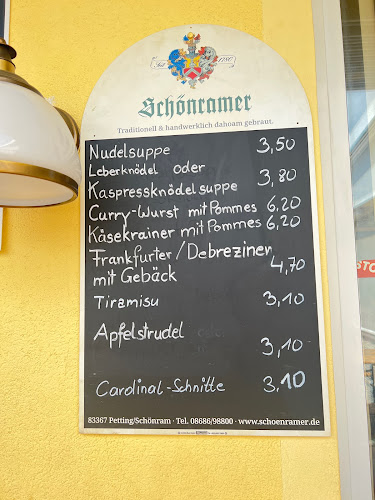 Seit 1780
Schönramer
Traditionell & handwerklich dahoam gebraut.
Nudelsuppe 3,50
Leberknödel oder
Kaspressknödelsuppe 3,80
Curry-Wurst mit Pommes 6.20
Käsekrainer mit Pommes 6,20
Frankfurter/Debreziner
mit Gebäck 4,70
Tiramisu 3,10
Apfelstrudel
3,10
Cardinal-Schnitte 3.10
83367 Petting/Schönram · Tel. 08686/98800 · www.schoenramer.de